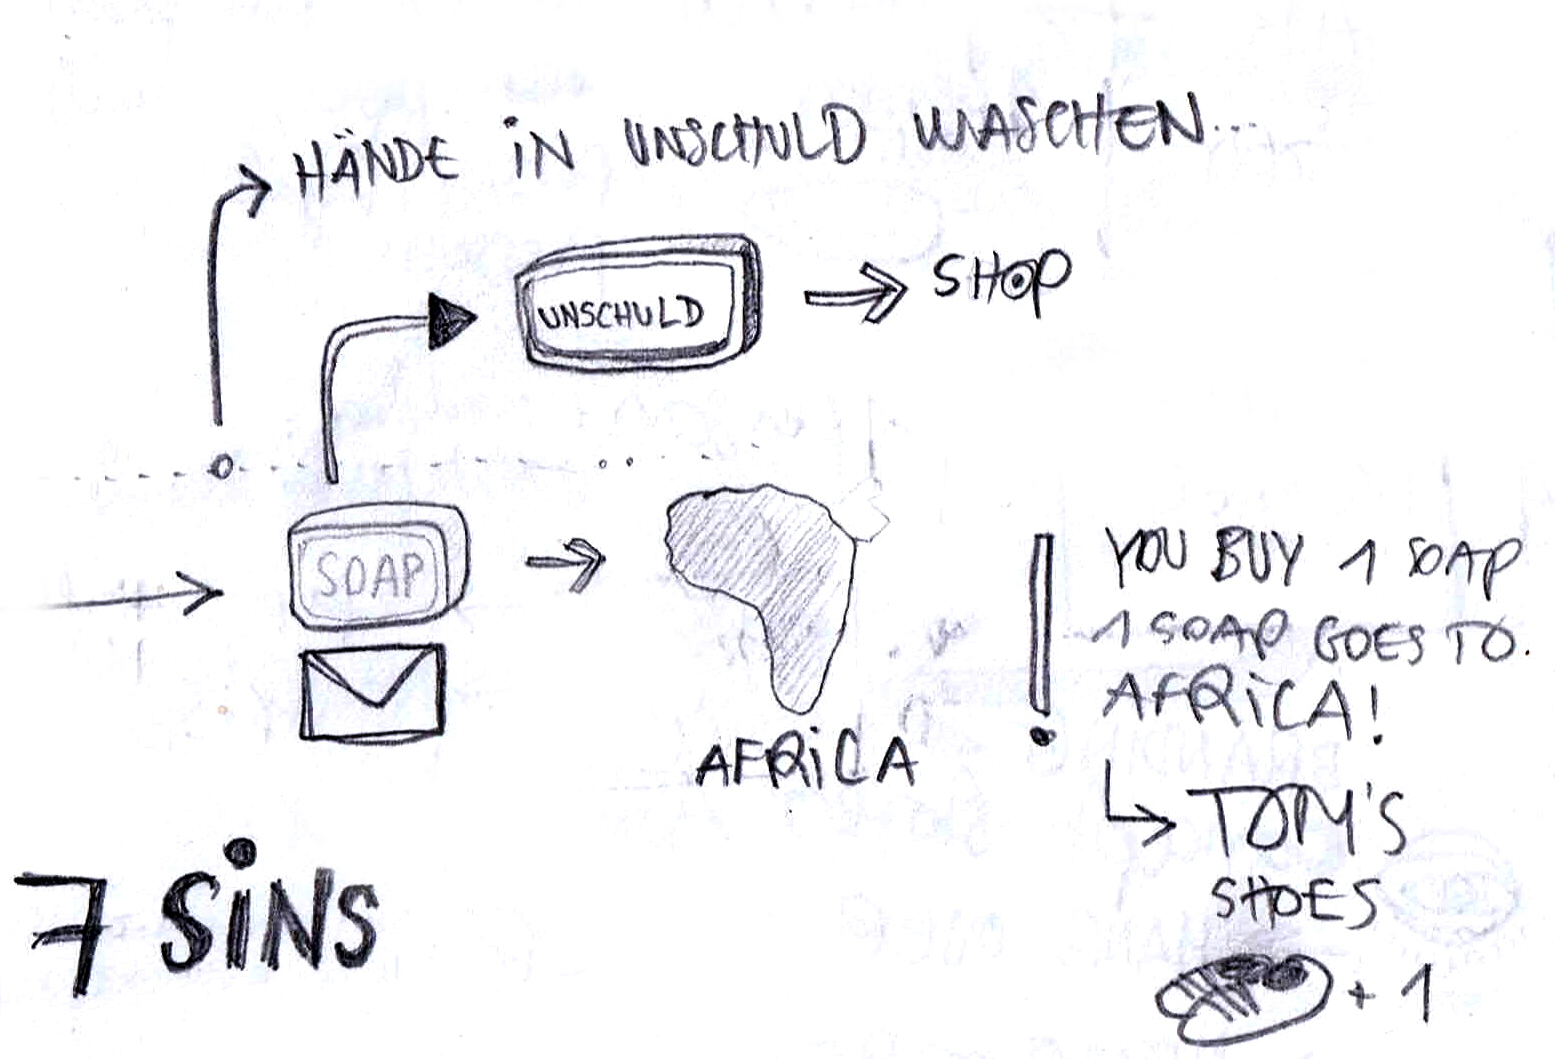 HÄNDE iN UNSCHULD WASCHEN...
UNSCHULD
SHOP
SOAP
AFRiCA
YOU BUY 1 SOAP
1 SOAP GOES TO.
AFRiCA!
TOM'S
SHOES
+ 1
7 SiNS